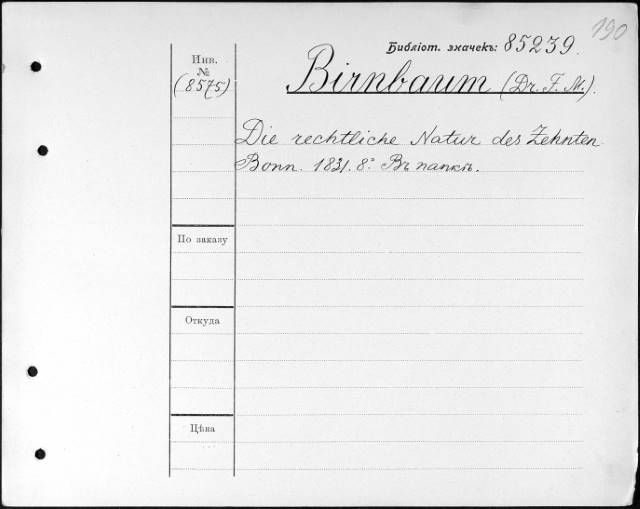 190
Библіот. значекъ: 85239.
Инв.
№
(8575)
Birnbaum (Dr. F. M.).
Die rechtliche Natur des Zehnten
Bonn. 1831. 8° Въ папкѣ.
По заказу
Откуда
Цѣна